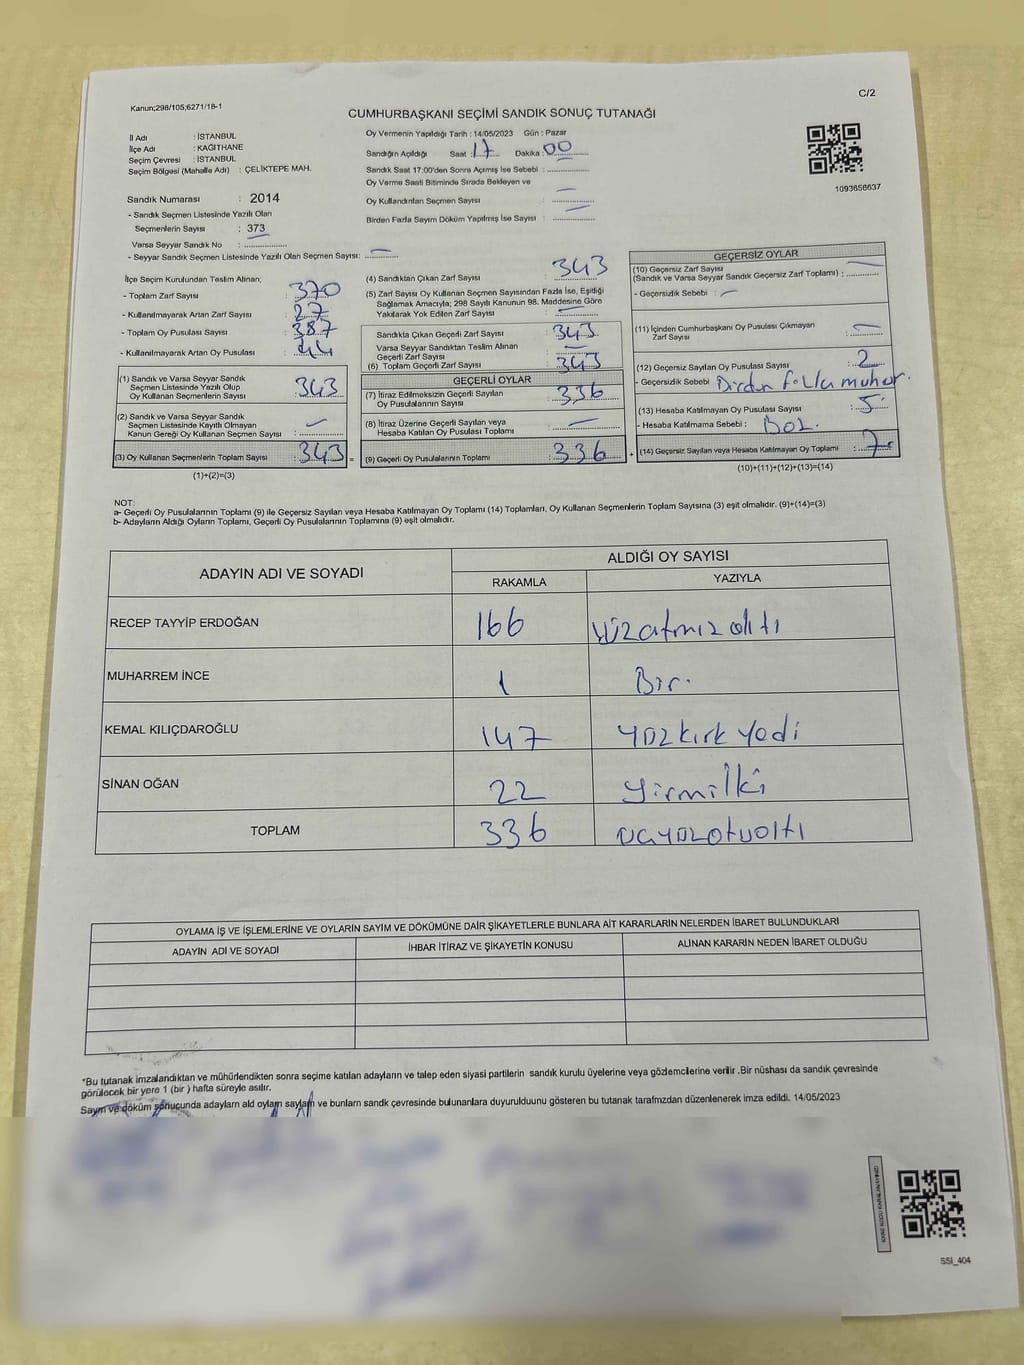 Kanun;298/105;6271/18-1
C/2
CUMHURBAŞKANI SEÇİMİ SANDIK SONUÇ TUTANAĞI
İl Adı : İSTANBUL
İlçe Adı : KAĞITHANE
Seçim Çevresi : İSTANBUL
Seçim Bölgesi (Mahalle Adı) : ÇELİKTEPE MAH.
Oy Vermenin Yapıldığı Tarih : 14/05/2023 Gün : Pazar
Sandığın Açıldığı Saat : 17 Dakika : 00
Sandık Saat 17:00'den Sonra Açımış İse Sebebi :
Oy Verme Saati Bitiminde Sırada Bekleyen ve
Oy Kullandırılan Seçmen Sayısı : —
Birden Fazla Sayım Döküm Yapılmış İse Sayısı : —
1093656637
Sandık Numarası : 2014
- Sandık Seçmen Listesinde Yazılı Olan
Seçmenlerin Sayısı : 373
Varsa Seyyar Sandık No :
- Seyyar Sandık Seçmen Listesinde Yazılı Olan Seçmen Sayısı: —
İlçe Seçim Kurulundan Teslim Alınan;
- Toplam Zarf Sayısı : 370
- Kullanılmayarak Artan Zarf Sayısı : 27
- Toplam Oy Pusulası Sayısı : 387
- Kullanılmayarak Artan Oy Pusulası : 44
(1) Sandık ve Varsa Seyyar Sandık
Seçmen Listesinde Yazılı Olup
Oy Kullanan Seçmenlerin Sayısı : 343
(2) Sandık ve Varsa Seyyar Sandık
Seçmen Listesinde Kayıtlı Olmayan
Kanun Gereği Oy Kullanan Seçmen Sayısı : —
(3) Oy Kullanan Seçmenlerin Toplam Sayısı : 343 =
(1)+(2)=(3)
(4) Sandıktan Çıkan Zarf Sayısı : 343
(5) Zarf Sayısı Oy Kullanan Seçmen Sayısından Fazla İse, Eşitliği
Sağlamak Amacıyla; 298 Sayılı Kanunun 98. Maddesine Göre
Yakılarak Yok Edilen Zarf Sayısı : —
Sandıkta Çıkan Geçerli Zarf Sayısı : 343
Varsa Seyyar Sandıktan Teslim Alınan
Geçerli Zarf Sayısı : —
(6) Toplam Geçerli Zarf Sayısı : 343
GEÇERLİ OYLAR
(7) İtiraz Edilmeksizin Geçerli Sayılan
Oy Pusulalarının Sayısı : 336
(8) İtiraz Üzerine Geçerli Sayılan veya
Hesaba Katılan Oy Pusulası Toplamı : —
(9) Geçerli Oy Pusulalarının Toplamı : 336 +
GEÇERSİZ OYLAR
(10) Geçersiz Zarf Sayısı
(Sandık ve Varsa Seyyar Sandık Geçersiz Zarf Toplamı) : —
- Geçersizlik Sebebi : —
(11) İçinden Cumhurbaşkanı Oy Pusulası Çıkmayan
Zarf Sayısı : —
(12) Geçersiz Sayılan Oy Pusulası Sayısı : 2
- Geçersizlik Sebebi
(13) Hesaba Katılmayan Oy Pusulası Sayısı : 5
- Hesaba Katılmama Sebebi :
(14) Geçersiz Sayılan veya Hesaba Katılmayan Oy Toplamı : 7
(10)+(11)+(12)+(13)=(14)
NOT:
a- Geçerli Oy Pusulalarının Toplamı (9) ile Geçersiz Sayılan veya Hesaba Katılmayan Oy Toplamı (14) Toplamları, Oy Kullanan Seçmenlerin Toplam Sayısına (3) eşit olmalıdır. (9)+(14)=(3)
b- Adayların Aldığı Oyların Toplamı, Geçerli Oy Pusulalarının Toplamına (9) eşit olmalıdır.
ADAYIN ADI VE SOYADI
ALDIĞI OY SAYISI
RAKAMLA YAZIYLA
RECEP TAYYİP ERDOĞAN 166 yüzatmızaltı
MUHARREM İNCE 1 Bir.
KEMAL KILIÇDAROĞLU 147 yüzkırk yedi
SİNAN OĞAN 22 yirmiİki
TOPLAM 336 üçyüzotualtı
OYLAMA İŞ VE İŞLEMLERİNE VE OYLARIN SAYIM VE DÖKÜMÜNE DAİR ŞİKAYETLERLE BUNLARA AİT KARARLARIN NELERDEN İBARET BULUNDUKLARI
ADAYIN ADI VE SOYADI İHBAR İTİRAZ VE ŞİKAYETİN KONUSU ALINAN KARARIN NEDEN İBARET OLDUĞU
*Bu tutanak imzalandıktan ve mühürlendikten sonra seçime katılan adayların ve talep eden siyasi partilerin sandık kurulu üyelerine veya gözlemcilerine verilir .Bir nüshası da sandık çevresinde
görülecek bir yere 1 (bir ) hafta süreyle asılır.
Sayım ve döküm sonucunda adayların ald oyların sayıları ve bunların sandk çevresinde bulunanlara duyurulduunu gösteren bu tutanak tarafmzdan düzenlenerek imza edildi. 14/05/2023
SSI_404